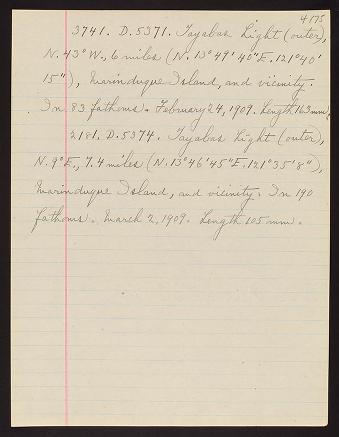 4175
3741. D.5371. Tayabas Light (outer),
N. 43° W., 6 miles (N. 13° 49' 40" E. 121° 40'
15"), Marinduque Island, and vicinity.
In 83 fathoms. February 24, 1909. Length 163 mm.
2181. D.5374. Tayabas Light (outer),
N. 9° E., 7.4 miles (N. 13° 46' 45" E. 121° 35' 8"),
Marinduque Island, and vicinity. In 190
fathoms. March 2, 1909. Length 105 mm.